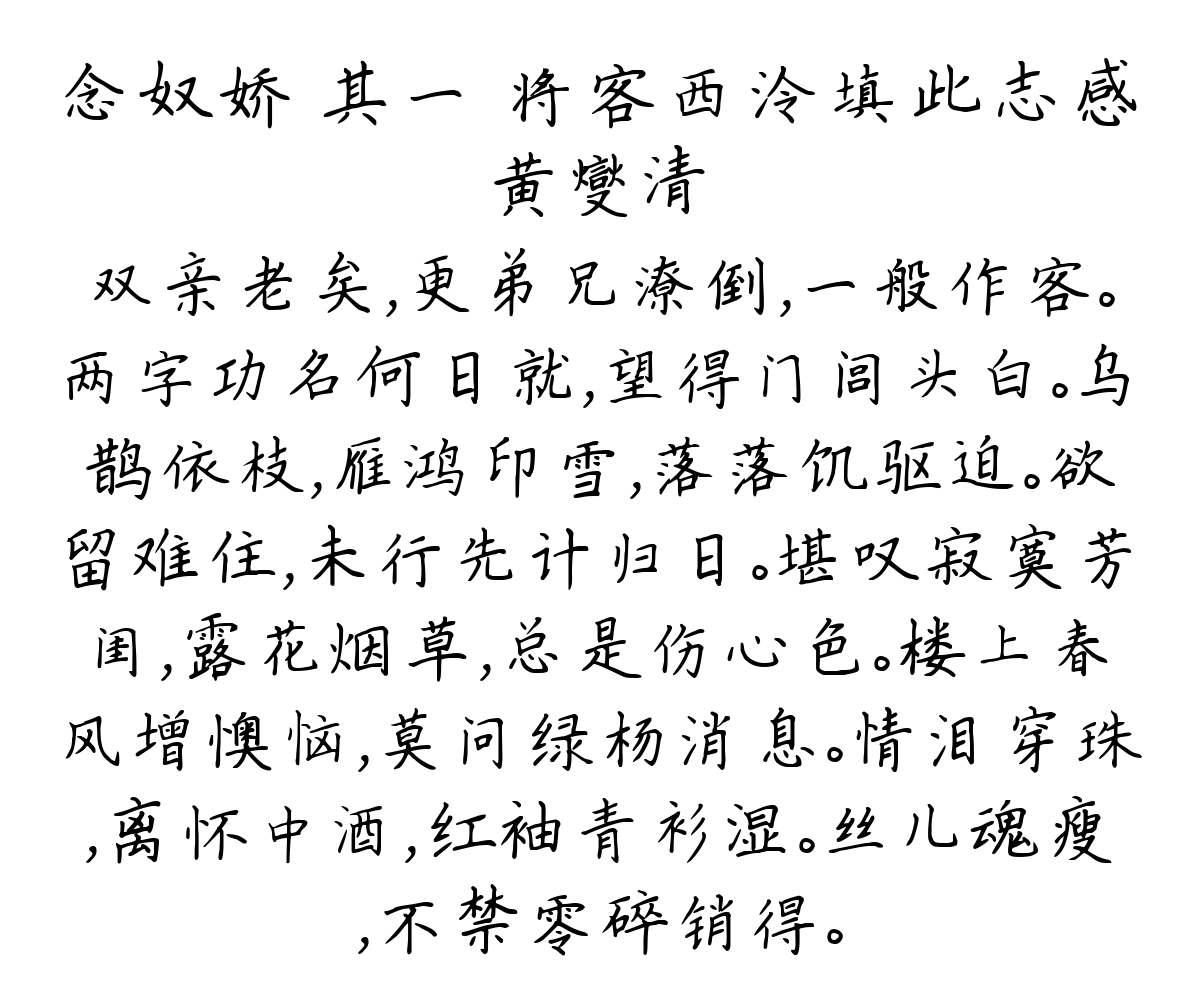 念奴娇 其一 将客西泠填此志感
黄燮清
双亲老矣,更弟兄潦倒,一般作客。
两字功名何日就,望得门闾头白。乌
鹊依枝,雁鸿印雪,落落饥驱迫。欲
留难住,未行先计归日。堪叹寂寞芳
闺,露花烟草,总是伤心色。楼上春
风增懊恼,莫问绿杨消息。情泪穿珠
,离怀中酒,红袖青衫湿。丝儿魂瘦
,不禁零碎销得。